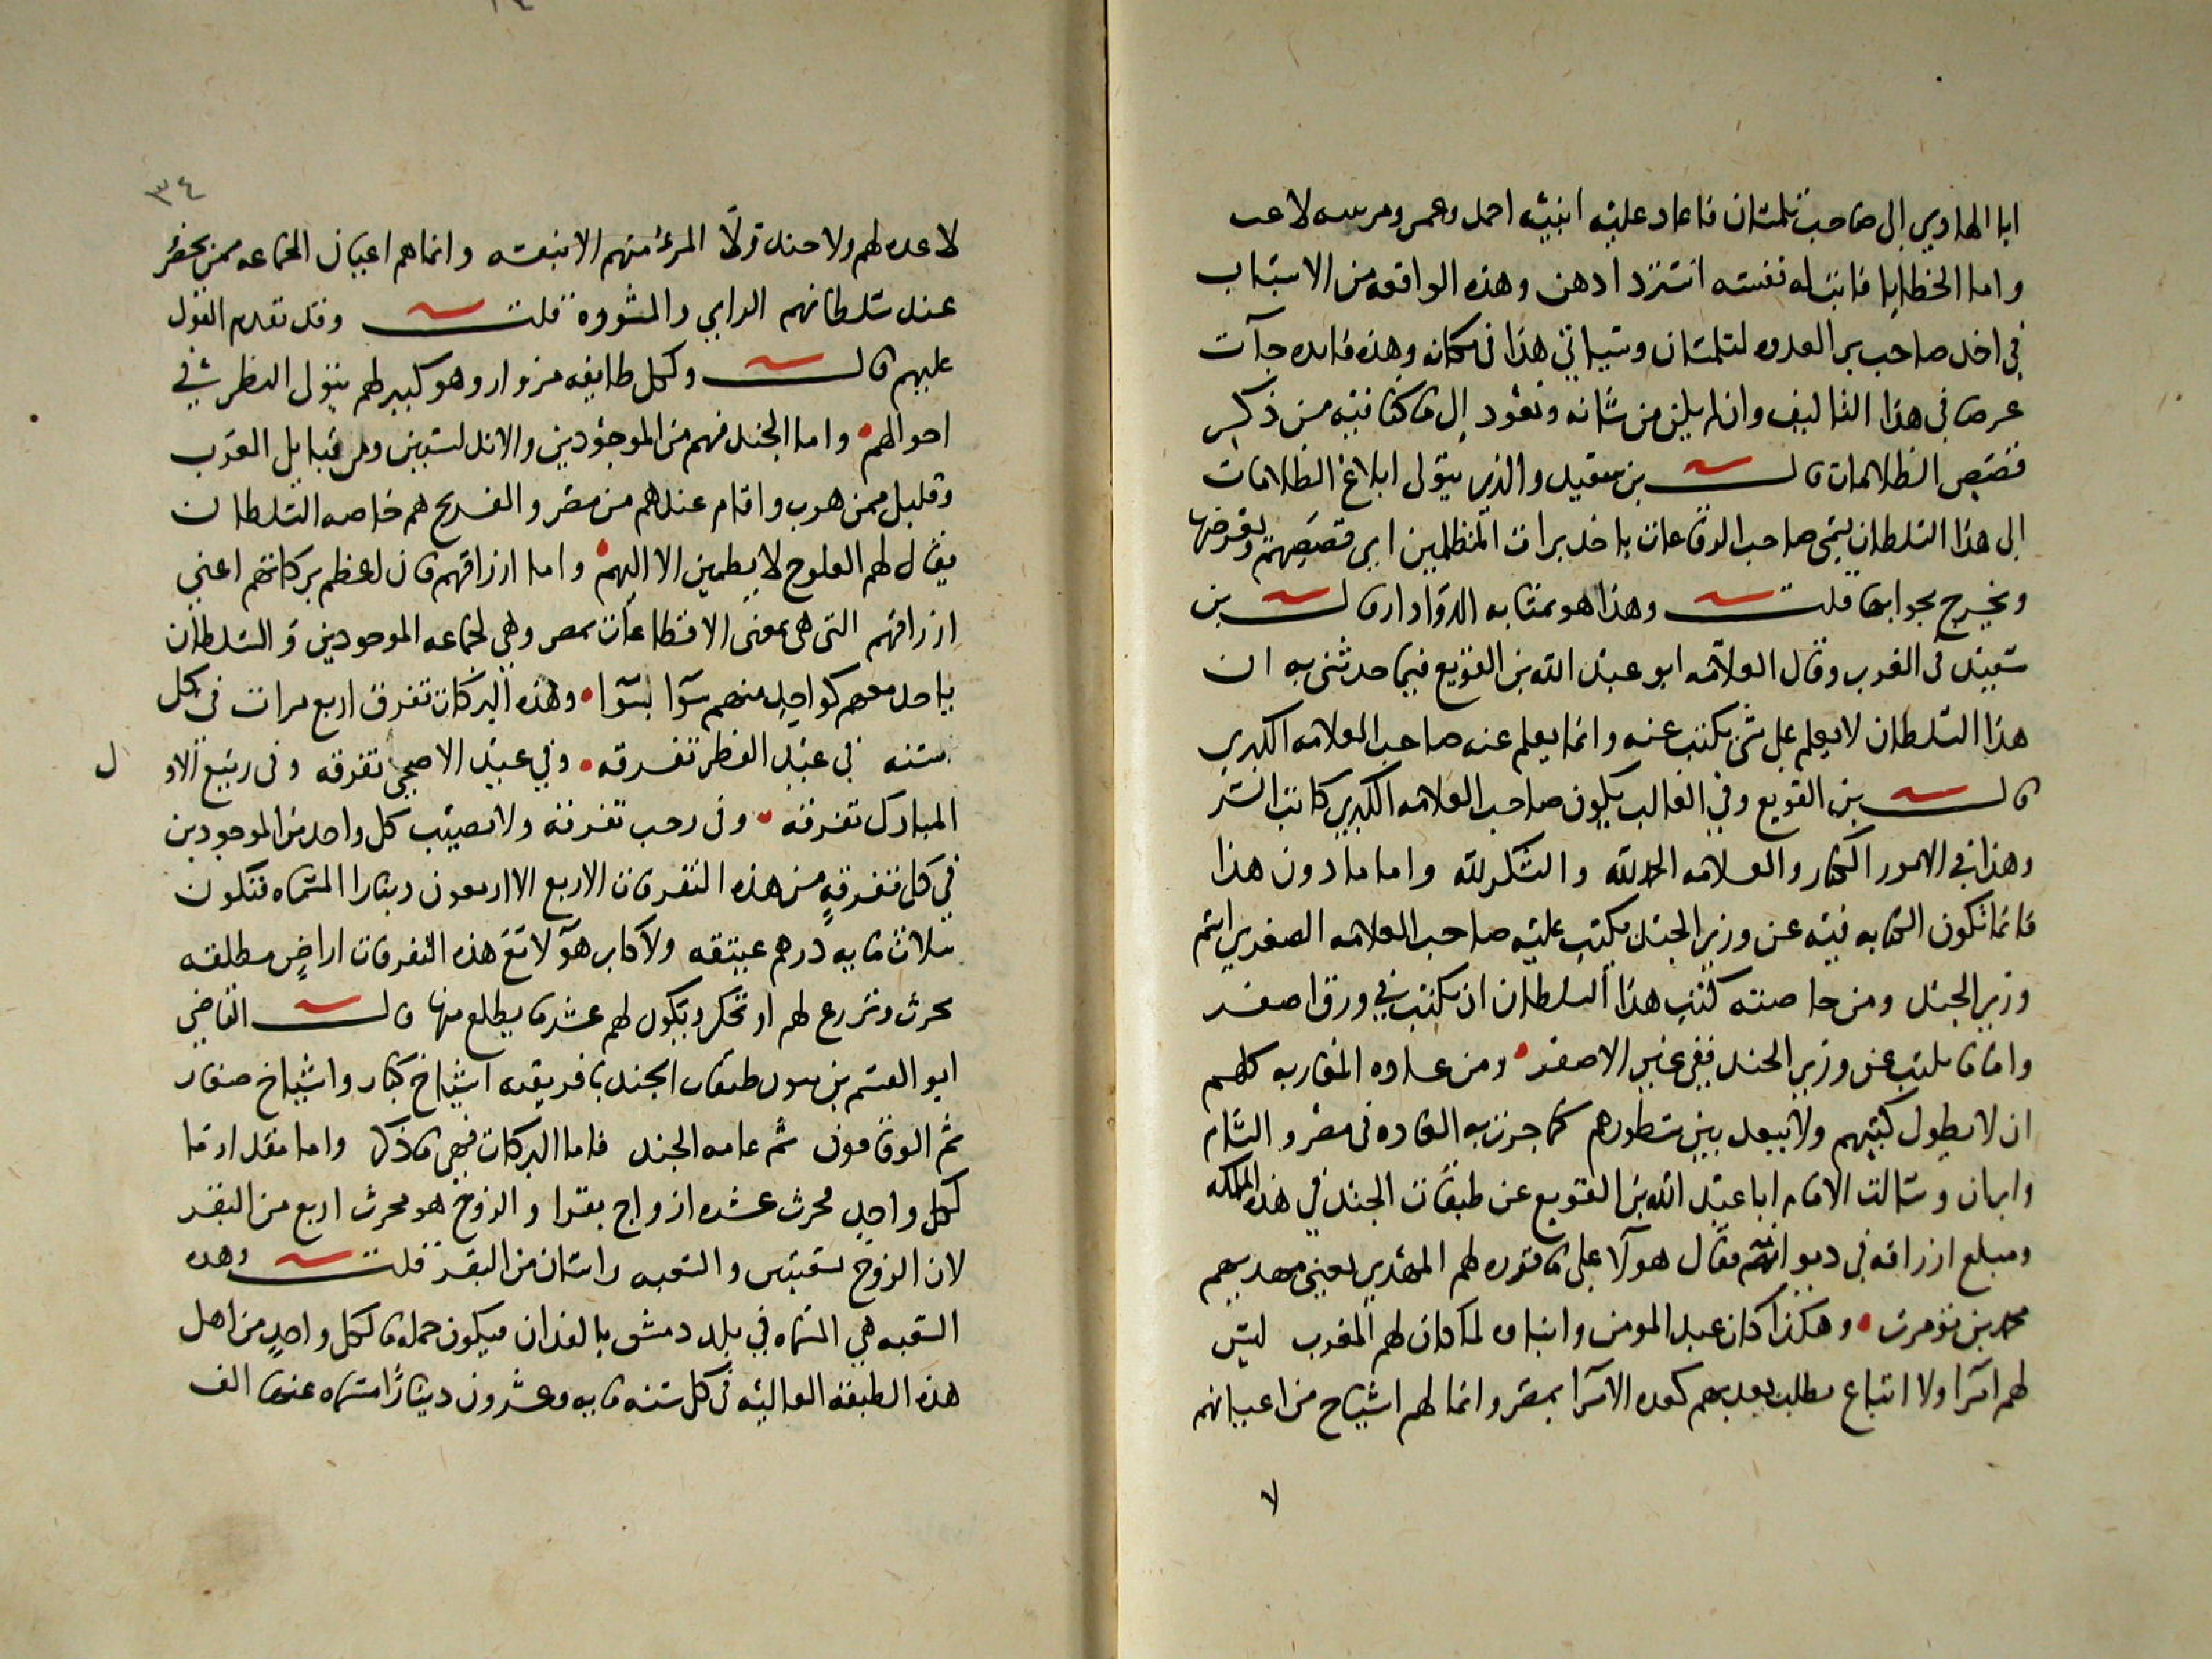 ابا الهادي الى صاحب تلمسان فاعاد عليه ابنيه احمد وعمر ومريم لاعب
واما الخطايا فانتباه نفسه استرد ادهن وهذه الواقعه من الاسباب
في اخذ صاحب بر العدوه لتلمسان وسياتي هذا في مكانه وهذه فايده جآت
عرضا في هذا التاليف وان لم يكن من شانه ونعود الى ما كنا فيه من ذكر
قصص الظلامات قال بن سعيد والذي يتولى ابلاغ الظلامات
الى هذا السلطان يسمى صاحب الرقاعات ياخذ براات المتظلمين اي قصصهم ويعرضها
ويخرج بجوابها قلت وهذا هو بمثابه الدوادار قال بن
سعيد في المغرب وقال العلامه ابو عبد الله بن القويع فيما حدثني به ان
هذا السلطان لا يعلم على شي يكتب عنه وانما يعلم عنه صاحب العلامه الكبرى
قال بن القويع وفي الغالب يكون صاحب العلامه الكبرى كاتب السر
وهذا في الامور الكبار والعلامه الحمد لله والشكر لله واما ما دون هذا
فانما تكون الكتابه فيه عن وزير الجند يكتب عليه صاحب العلامه الصغرى اسم
وزير الجند ومن خاصته كتب هذا السلطان ان يكتب في ورق اصفر
واما ما يكتب عن وزير الجند ففي غير الاصفر ومن عاده المغاربه كلهم
ان لا يطول كتبهم ولا يبعد بين سطورهم كما جرت به العاده في مصر والشام
وايران وسالت الامام ابا عبد الله بن القويع عن طبقات الجند في هذه المملكه
ومبلغ ارزاقه في ديوانهم فقال هولا على ما قرره لهم المهدي يعني مهديهم
محمد بن تومرت وهكذا كان عبد المومن وابناه لما كان لهم المغرب ليس
لهم امرا ولا اتباع يطلب بعدهم كعده الامرا بمصر وانما لهم اشياخ من اعيانهم
لا
٣٤
لا عده لهم ولا جند ولا المرء منهم الا بنفسه وانما هم اعيان الجماعه ممن يحضر
عند سلطانهم الراي والمشوره قلت وقد تقدم القول
عليهم قال ولكل طايفه مزوار وهو كبير لهم يتولى النظر في
احوالهم واما الجند فهم من الموحدين والاندلسيين ومن قبايل العرب
وقليل ممن هرب واقام عندهم من مصر والفرنج هم خاصه السلطان
يقال لهم العلوج لا يطمين الا اليهم واما ارزاقهم فان لعظم بركاتهم اعني
ارزاقهم التي هي بمعنى الاقطاعات بمصر وهي لجماعه الموحدين والسلطان
ياخذ معهم كواحد منهم سوا بسوا وهذه البركات تفرق اربع مرات في كل
سنه في عيد الفطر تفرقه وفي عيد الاضحى تفرقه وفي ربيع الاو ل
المبارك تفرقه وفي رجب تفرقه ولا يصيب كل واحد من الموحدين
في كل تفرقه من هذه التفرقات الاربع الا اربعون دينارا المسماه فتكون
ثلاث مايه درهم عتيقه ولاكابر هولا مع هذه التفرقات اراض مطلقه
تحرث وتزرع لهم او تحكر ويكون لهم عشر ما يطلع منها قال القاضي
ابو القسم بن بنون طبقات الجند بافريقيه اشياخ كبار واشياخ صغار
ثم الوقافون ثم عامه الجند فاما البركات فهي ما ذكر واما مقدار ما
لكل واحد محرث عشره ازواج بقرا والزوج هو محرث اربع من البقر
لان الزوج بشعبتين والشعبه راسان من البقر قلت وهذه
الشعبه هي المسماه في بلد دمشق بالفدان فيكون جمله ما لكل واحد من اهل
هذه الطبقه العاليه في كل سنه مايه وعشرون دينارا مسماه عنها الف